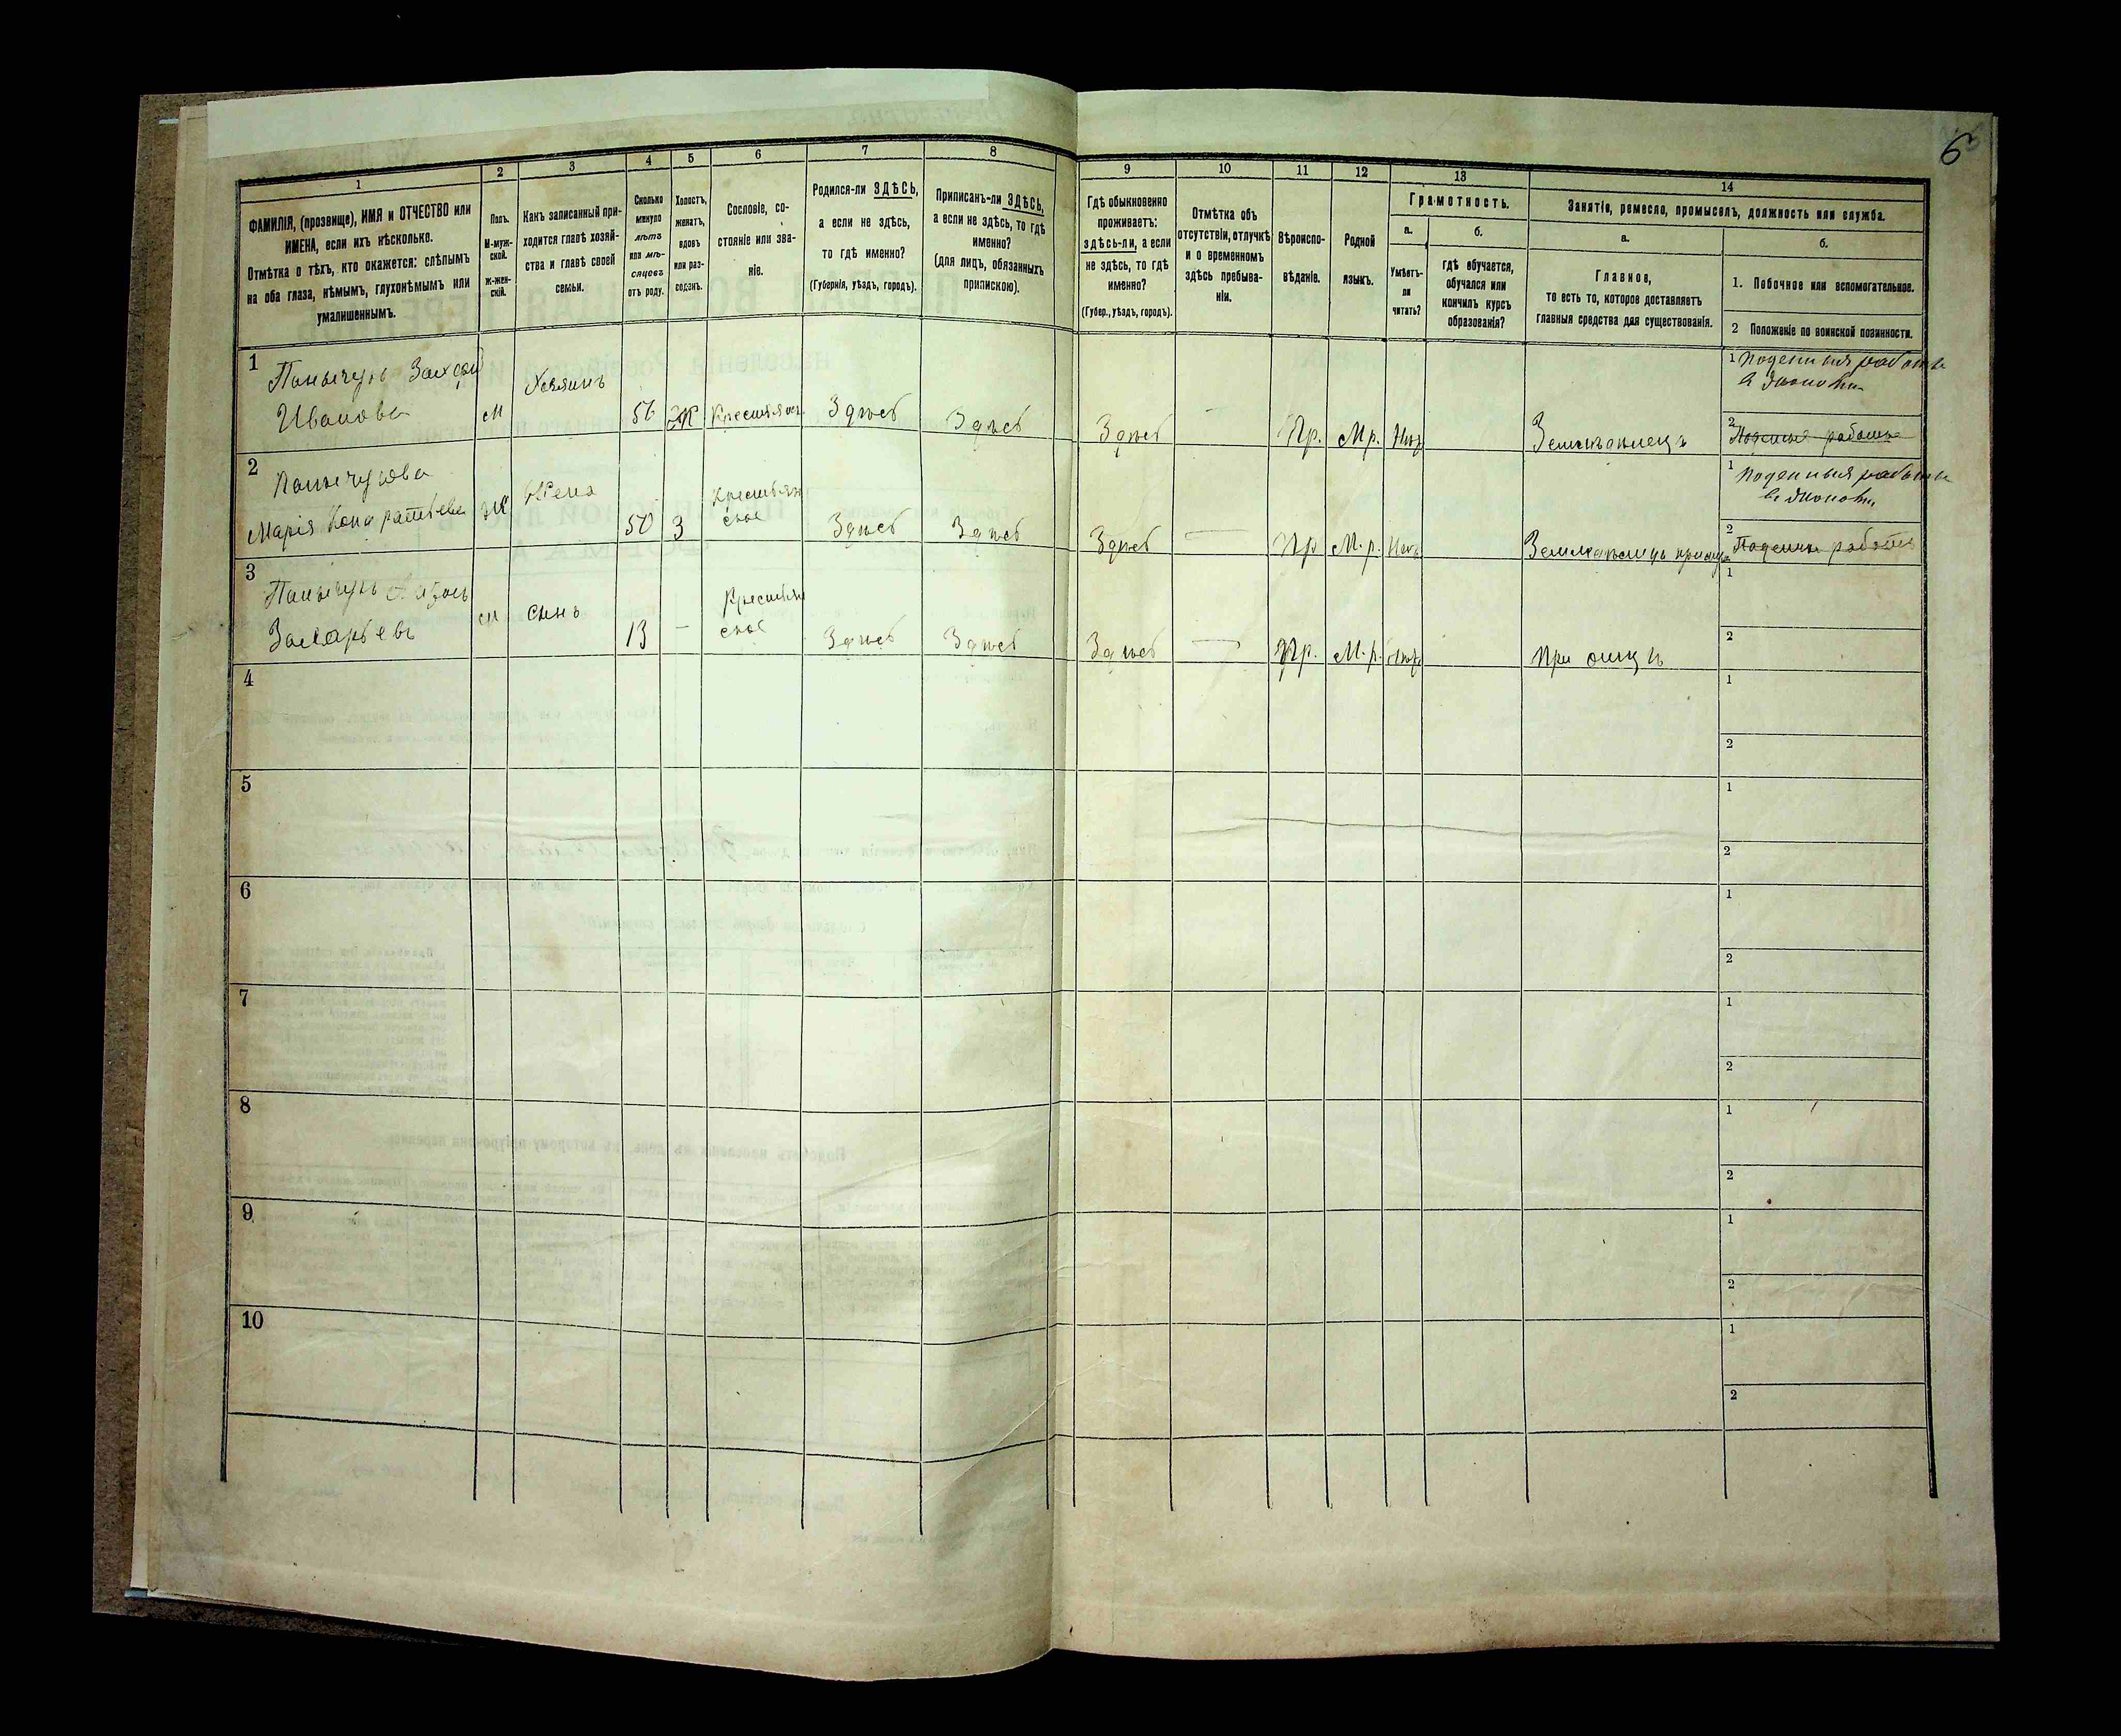 6
1
ФАМИЛІЯ, (прозвище), ИМЯ и ОТЧЕСТВО или
ИМЕНА, если ихъ нѣсколько.
Отмѣтка о тѣхъ, кто окажется: слѣпымъ
на оба глаза, нѣмымъ, глухонѣмымъ или
умалишеннымъ.
2
Полъ.
М-муж-
ской.
Ж-жен-
скій.
3
Какъ записанный при-
ходится главѣ хозяй-
ства и главѣ своей
семьи.
4
Сколько
минуло
лѣтъ
или мѣ-
сяцовъ
отъ роду.
5
Холостъ,
женатъ,
вдовъ
или раз-
веденъ.
6
Сословіе, со-
стояніе или зва-
ніе.
7
Родился-ли ЗДѢСЬ,
а если не здѣсь,
то гдѣ именно?
(Губернія, уѣздъ, городъ).
8
Приписанъ-ли ЗДѢСЬ,
а если не здѣсь, то гдѣ
именно?
(для лицъ, обязанныхъ
припискою).
9
Гдѣ обыкновенно
проживаетъ:
здѣсь-ли, а если
не здѣсь, то гдѣ
именно?
(Губер., уѣздъ, городъ).
10
Отмѣтка объ
отсутствіи, отлучкѣ
и о временномъ
здѣсь пребыва-
ніи.
11
Вѣроиспо-
вѣданіе.
12
Родной
языкъ.
13
Грамотность.
а.
Умѣетъ-
ли
читать?
б.
гдѣ обучается,
обучался или
кончилъ курсъ
образованія?
14
Занятіе, ремесло, промыселъ, должность или служба.
а.
Главное,
то есть то, которое доставляетъ
главныя средства для существованія.
б.
1. Побочное или вспомогательное.
2 Положеніе по воинской повинности.
1
Иванова
м
Хозяинъ
56
Ж
Здѣсь
Здѣсь
Здѣсь
—
Пр.
М р.
Нѣт
1 Поденныя работы
2
2
Марія Кондратьева
Ж
Жена
50
З
Крестьян
ское
Здѣсь
Здѣсь
Здѣсь
—
Пр
М. р.
1 Поденныя работы
2
3
Захарьевъ
м
Сынъ
13
—
Крестьян
ское
Здѣсь
Здѣсь
Здѣсь
—
Пр.
М. р.
При отцѣ
1
2
4
1
2
5
1
2
6
1
2
7
1
2
8
1
2
9
1
2
10
1
2